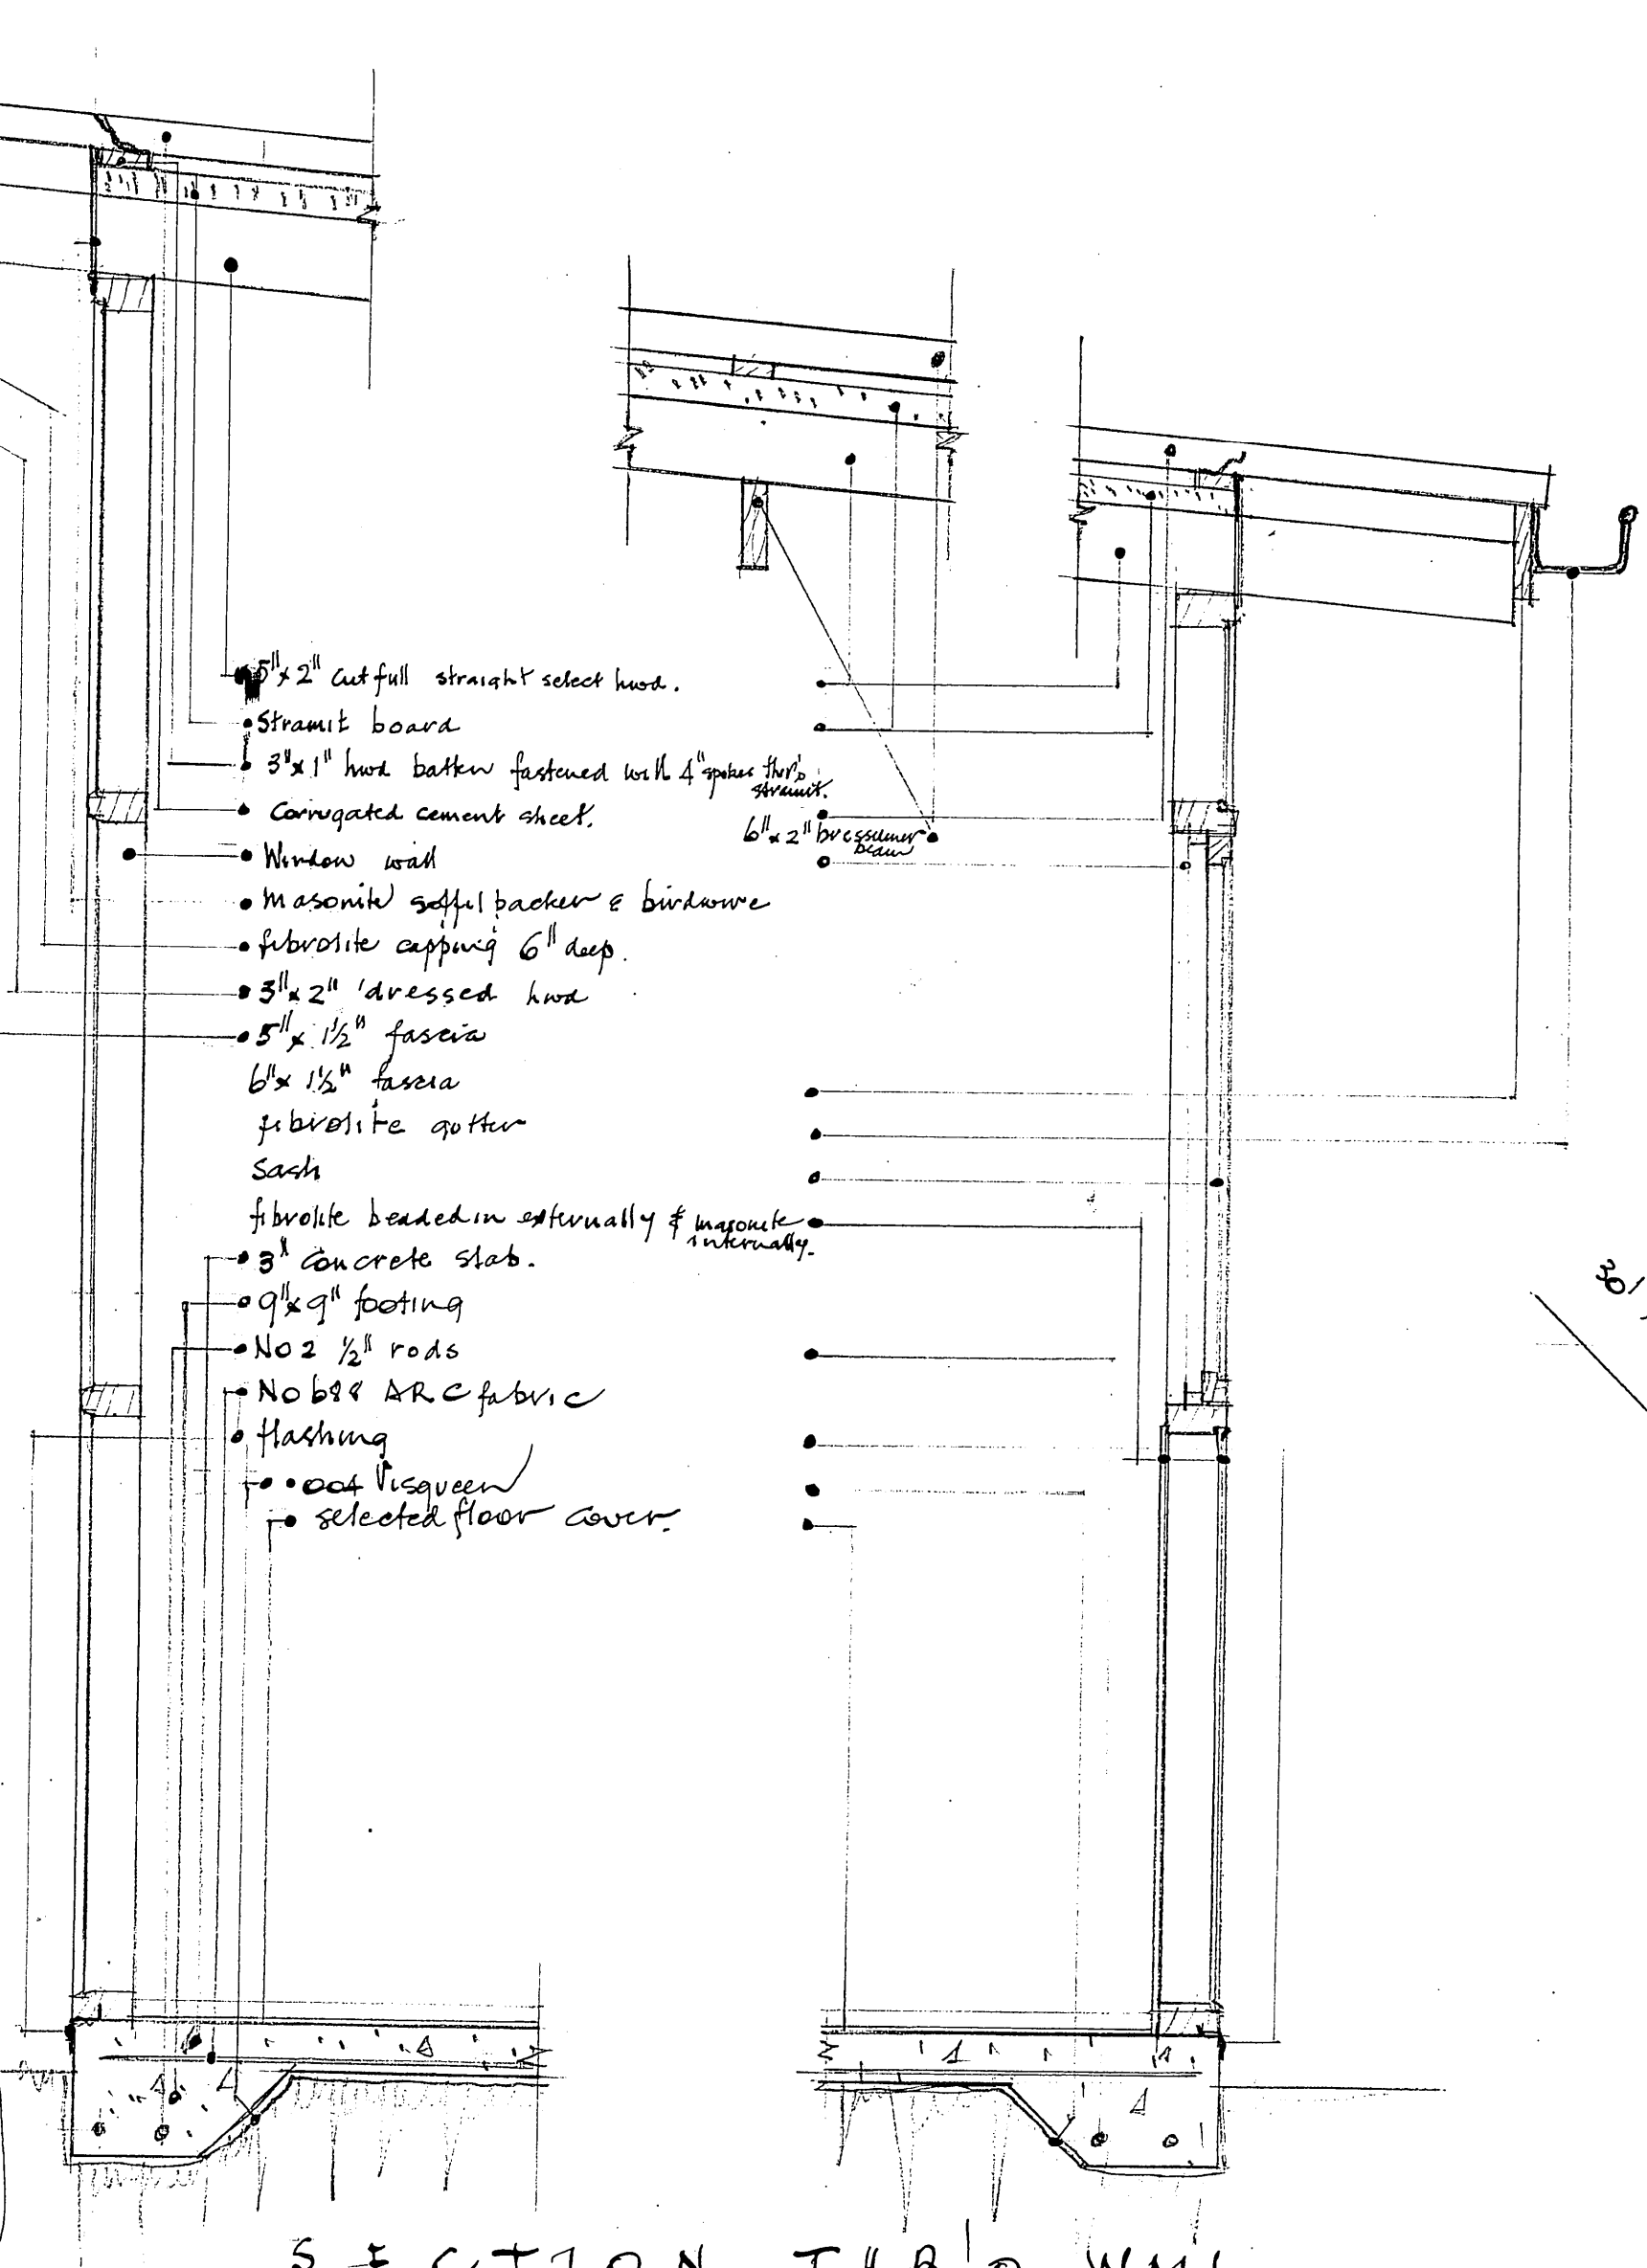 5"x 2" cut full straight select hwd.
Stramit board
3"x 1" hwd batten fastened with 4" spikes thr'o
stramit.
Corrugated cement sheet.
6"x 2" bressumer
beam
Window wall
Masonite soffit backer & birdwire
fibrolite capping 6" deep.
3"x 2" dressed hwd
5"x 1½" fascia
6"x 1½" fascia
fibrolite gutter
Sash
fibrolite beaded in externally & masonite
internally.
3" concrete slab.
9"x 9" footing
No 2 ½" rods
No 688 ARC fabric
flashing
.004 Visqueen
selected floor cover.
SECTION THR'O WALL